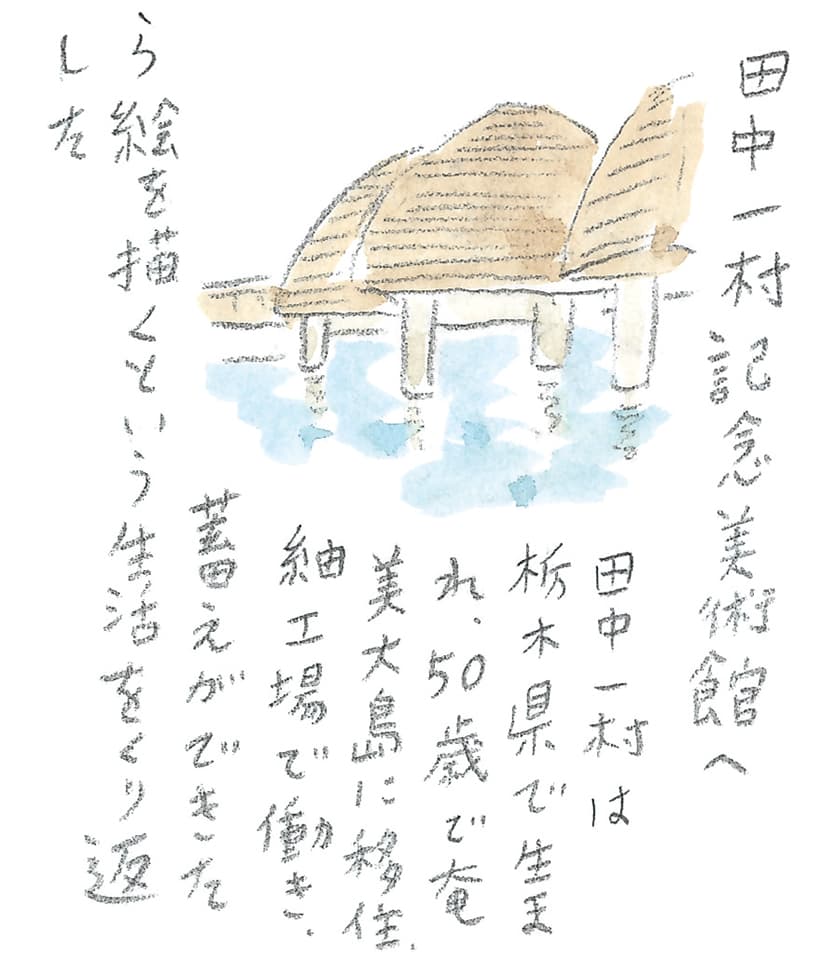 田中一村記念美術館へ
田中一村は
栃木県で生ま
れ、50歳で奄
美大島に移住、
紬工場で働き、
蓄えができた
ら絵を描くという生活をくり返
した